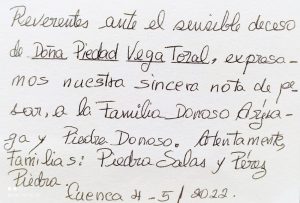 Reverentes ante el sensible deceso
de Doña Piedad Vega Toral, expresa-
mos nuestra sincera nota de pe-
sar, a la Familia Donoso
y Piedra Donoso. Atentamente,
Familias: Piedra Salas y Pérez
Piedra.
Cuenca 4-5/2022.